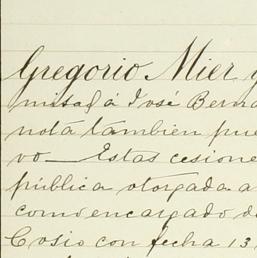 Gregorio Mier y
mitad á José Berna
nota tambien pue
vo — Estas cesione
pública otorgada a
como encargado de
Cosio con fecha 13